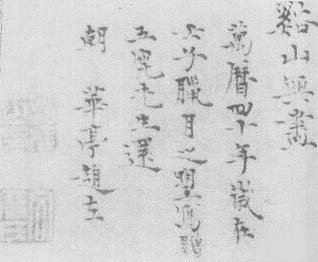 谿山無盡
萬曆四十年歲在
壬子臘月之望寫贈
五雲先生還
朝 華亭趙左